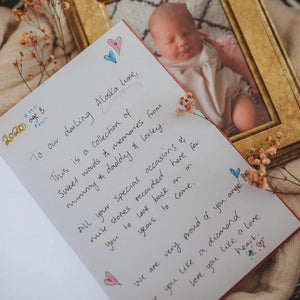 2020
age 3
To our darling Alaska Luna,
This is a collection of
sweet words & memories from
mummy & daddy & loving.
All your special occasions &
mile stones recorded here for
you to look back on in
years to come.
We are very proud of you angel
you like a diamond
love you like a love
heart